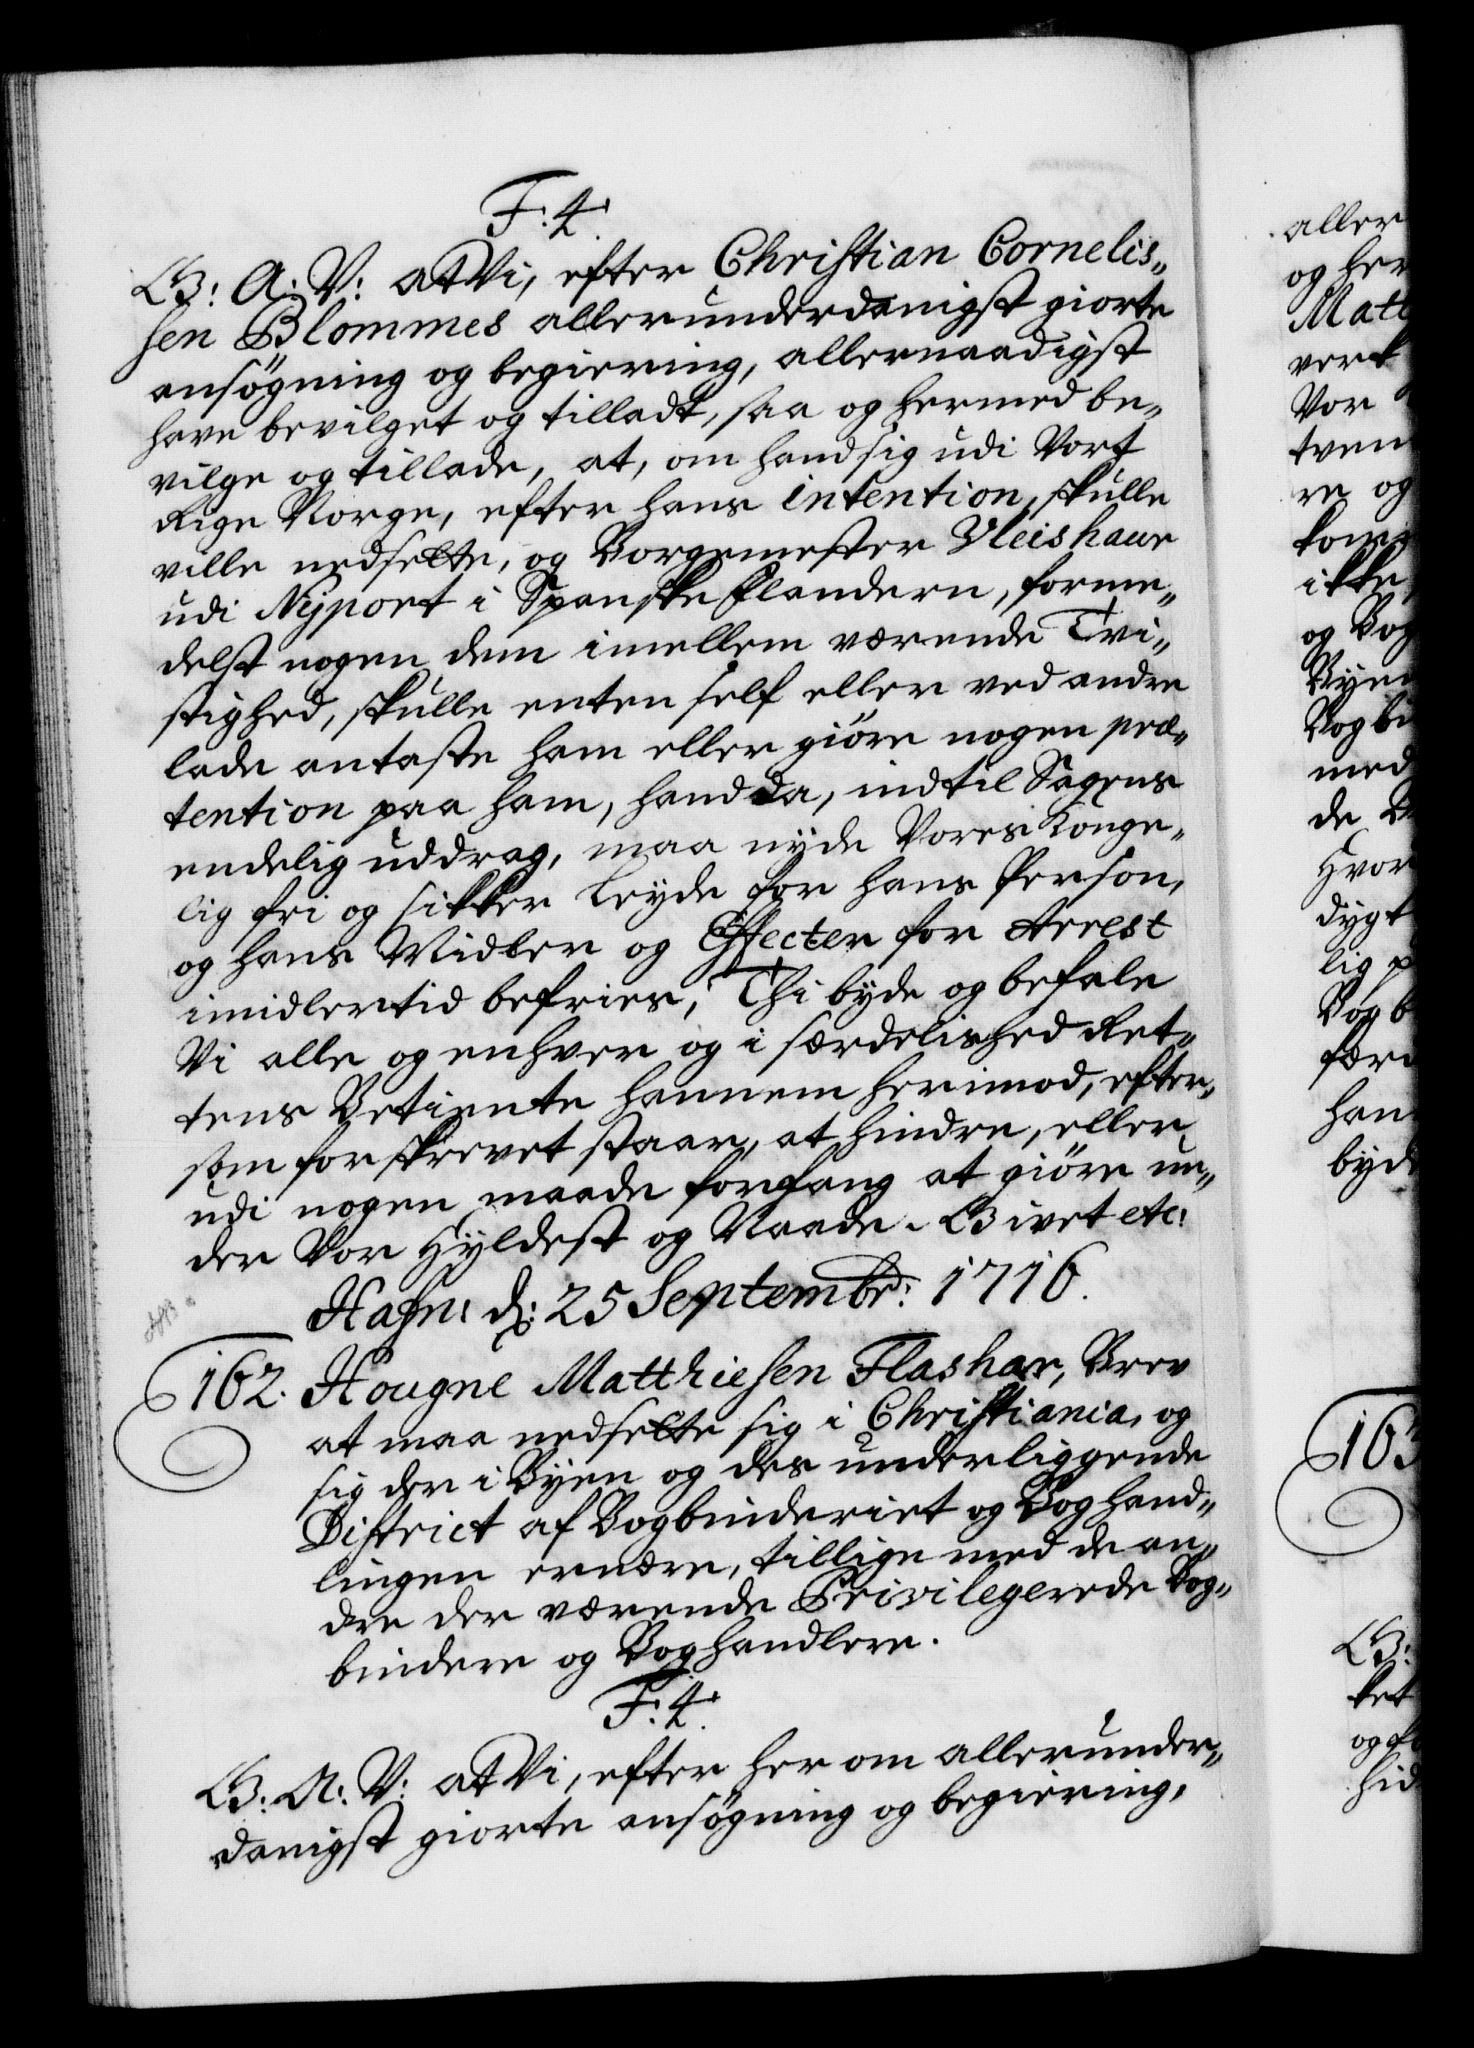 F: 4.
G: A: V: at Vi, efter Christian Cornelis„
sen Blommes allerunderdanigst giorte
ansøgning og begiering, allernaadigst
have bevilget og tilladt, saa og hermed be„
vilge og tillade, at, om hand sig udi Vort
Rige Norge, efter hans intention, skulle
ville nedsette, og Borgemester Vleishauer
udi Nyport i Spanske Flandern, forme„
delst nogen dem imellem værende Tvi„
stighed, skulle enten self eller ved andre
lade antaste ham eller giöre nogen præ„
tention paa ham, hand da, indtil Sagens
endelig uddrag, maa nyde Vores Konge„
lig fri og sikker Leyde for hans Person,
og hans Midler og Effecter for Arrest
imidlertid befries, Thi byde og befale
Vi alle og enhver og i særdelished Ret„
tens Betiente hannem herimod, efter„
som forskrevet staar, at hindre, eller
udi nogen maade forfang at giöre un„
der Vor Hyldest og Naade. Givet etc:
Hafn: d: 25 Septembr: 1716.
162. Hougne Matthiesen Flashar, Brev
at maa nedsette sig i Christiania, og
sig der i Byen og des underliggende
District af Bogbinderiet og Boghand„
lingen ernære, tillige med de an„
dre der værende Privilegerede Bog„
bindere og Boghandlere.
F: 4.
G: A: V: at Vi, efter her om allerunder„
danigst giorte ansøgning og begiering,
aller
og her
Matt
verk
Vor
tven
re og
kom
ikke
og Bog
Byen
Bogbi
med
de
Hvor
dygt
lig p
Bogb
færd
han
byd
163
G:
ket
og fo
hid